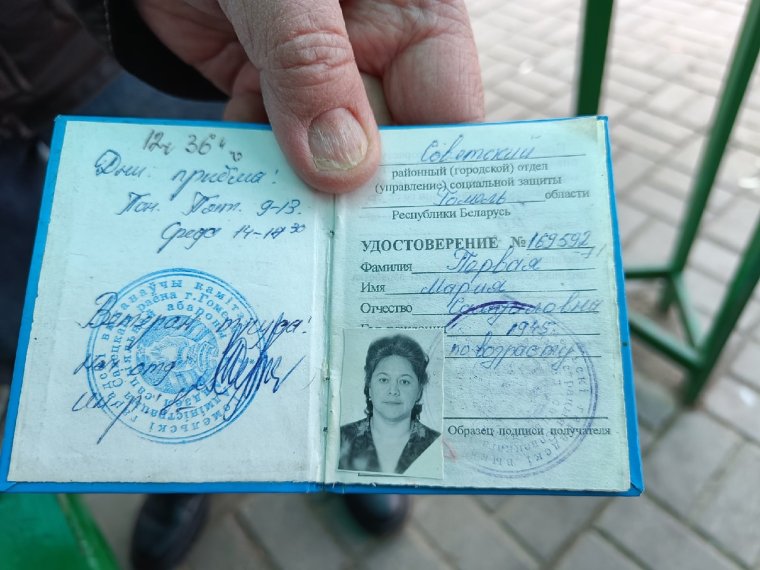 12ч 36
Дни приёма!
Пон. Пят. 9-13.
Среда 14-17 30
Ветеран труда!
Советский
районный (городской) отдел
(управление) социальной защиты
Гомель области
Республики Беларусь
УДОСТОВЕРЕНИЕ № 169592
Фамилия Первая
Имя Мария
Отчество
1945
по возрасту
Образец подписи получателя